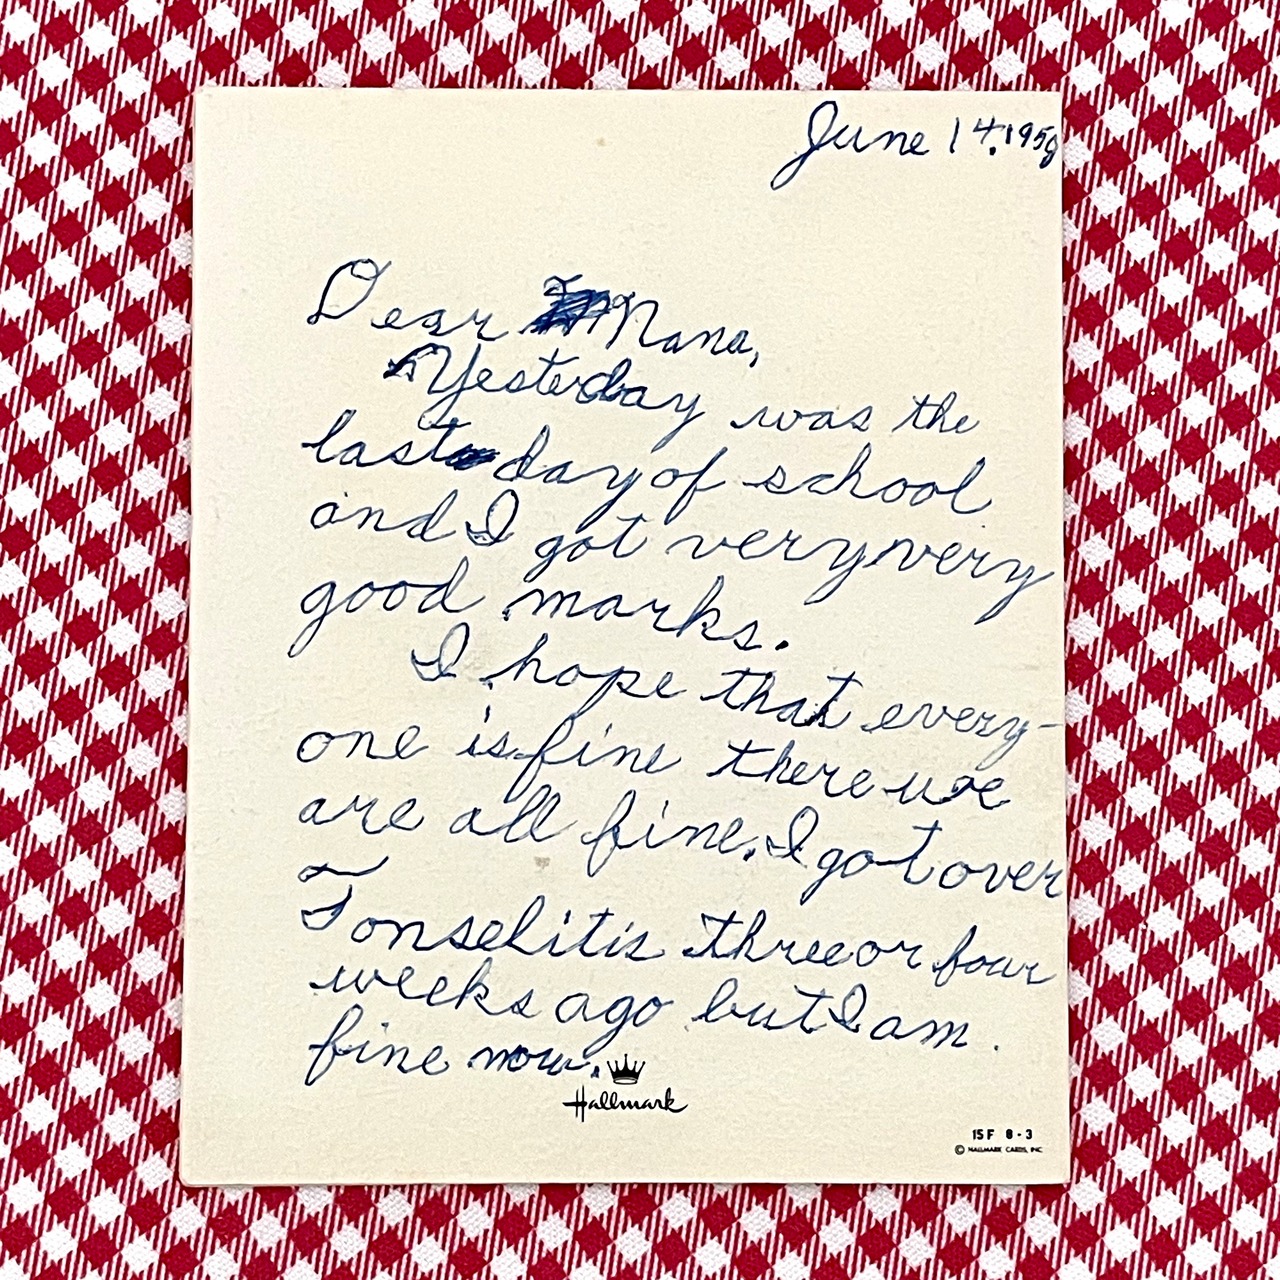 June 14, 1958
Dear Nana,
Yesterday was the
last day of school
and I got very very
good marks.
I hope that every-
one is fine there we
are all fine. I got over
a
Tonselitis three or four
weeks ago but I am
fine now.
Hallmark
15F 8-3
© HALLMARK CARDS, INC